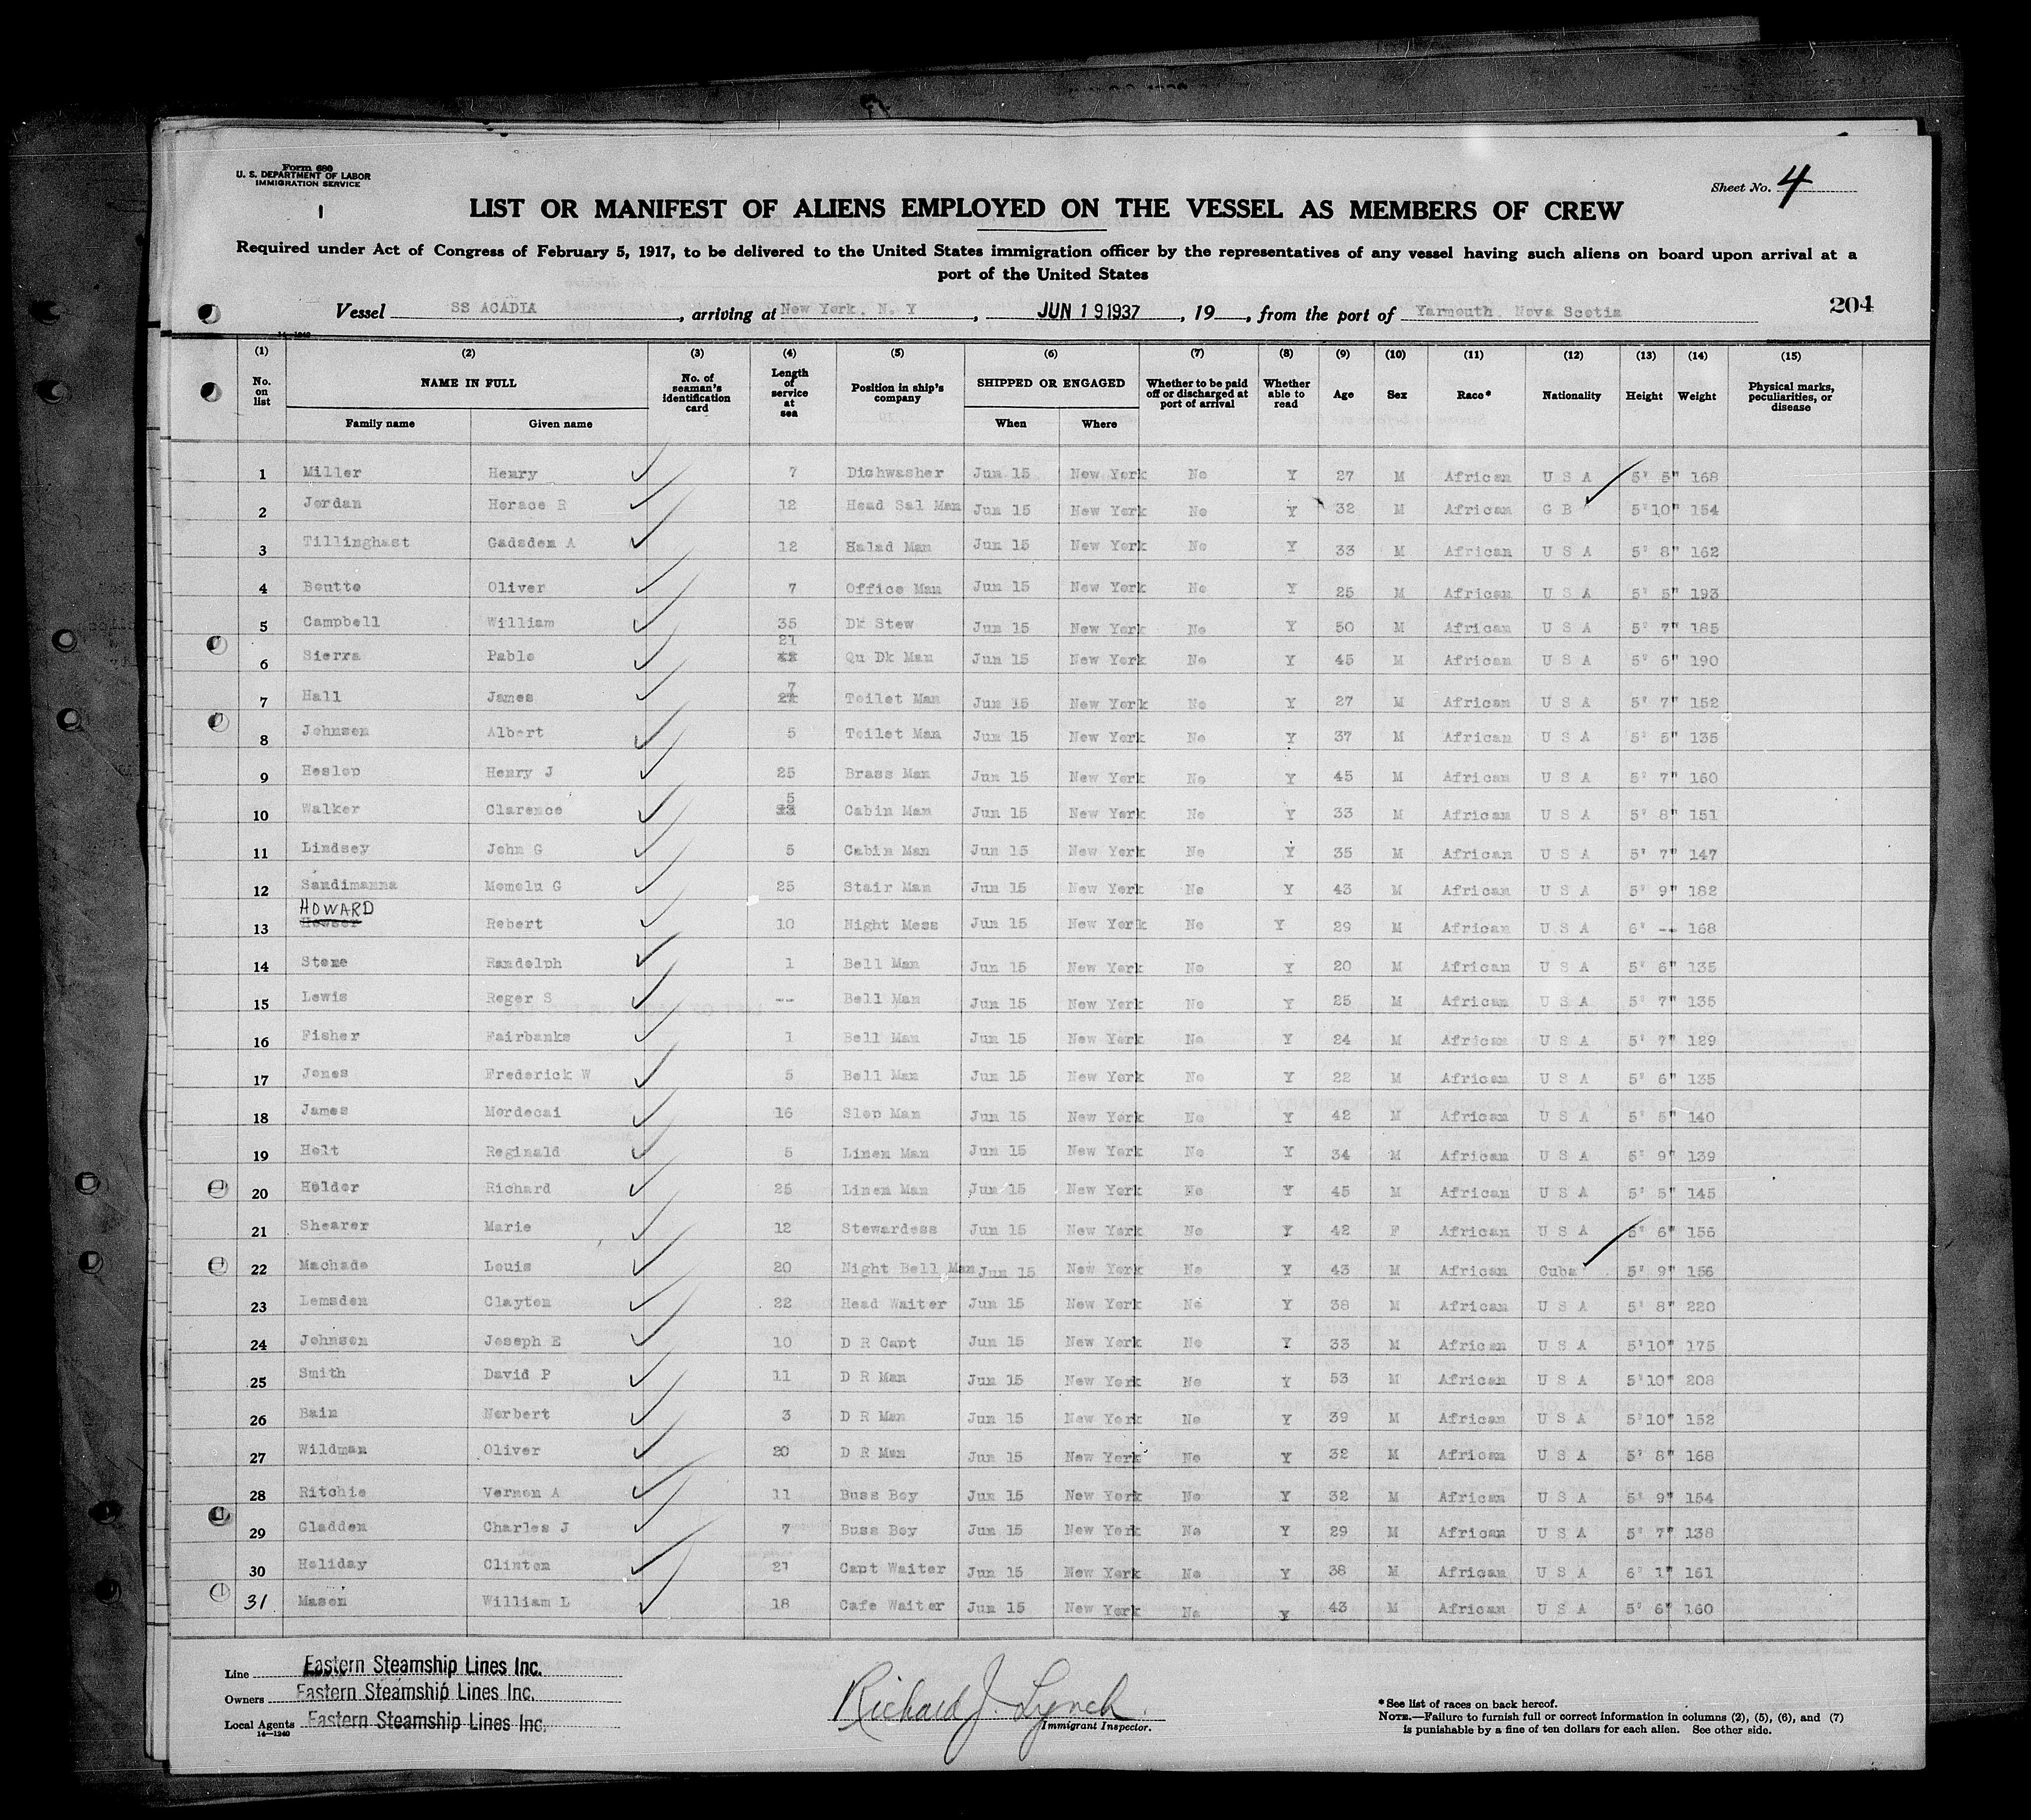 Form 680
U. S. DEPARTMENT OF LABOR
IMMIGRATION SERVICE
1
Sheet No. 4
LIST OR MANIFEST OF ALIENS EMPLOYED ON THE VESSEL AS MEMBERS OF CREW
Required under Act of Congress of February 5, 1917, to be delivered to the United States immigration officer by the representatives of any vessel having such aliens on board upon arrival at a
port of the United States
Vessel SS ACADIA, arriving at New York, N. Y, JUN 19 1937, 19, from the port of Yarmouth Nova Scotia 204
14—1240
(1) (2) (3) (4) (5) (6) (7) (8) (9) (10) (11) (12) (13) (14) (15)
No. on list NAME IN FULL No. of seaman's identification card Length of service at sea Position in ship's company SHIPPED OR ENGAGED Whether to be paid off or discharged at port of arrival Whether able to read Age Sex Race* Nationality Height Weight Physical marks, peculiarities, or disease
Family name Given name When Where
1 Miller Henry 7 Dishwasher Jun 15 New York No Y 27 M African U S A 5' 5" 168
2 Jordan Horace R 12 Head Sal Man Jun 15 New York No Y 32 M African G B 5'10" 154
3 Tillinghast Gadsden A 12 Halad Man Jun 15 New York No Y 33 M African U S A 5' 8" 162
4 Boutte Oliver 7 Office Man Jun 15 New York No Y 25 M African U S A 5' 5" 193
5 Campbell William 35 Dk Stew Jun 15 New York No Y 50 M African U S A 5' 7" 185
6 Sierra Pablo 21 Qu Dk Man Jun 15 New York No Y 45 M African U S A 5' 6" 190
7 Hall James 7 Toilet Man Jun 15 New York No Y 27 M African U S A 5' 7" 152
8 Johnson Albert 5 Toilet Man Jun 15 New York No Y 37 M African U S A 5' 5" 135
9 Heslop Henry J 25 Brass Man Jun 15 New York No Y 45 M African U S A 5' 7" 160
10 Walker Clarence 5 Cabin Man Jun 15 New York No Y 33 M African U S A 5' 8" 151
11 Lindsey John G 5 Cabin Man Jun 15 New York No Y 35 M African U S A 5' 7" 147
12 Sandimanna Momolu G 25 Stair Man Jun 15 New York No Y 43 M African U S A 5' 9" 182
13 HOWARD Robert 10 Night Mess Jun 15 New York No Y 29 M African U S A 6' -- 168
14 Stone Randolph 1 Bell Man Jun 15 New York No Y 20 M African U S A 5' 6" 135
15 Lewis Roger S -- Bell Man Jun 15 New York No Y 25 M African U S A 5' 7" 135
16 Fisher Fairbanks 1 Bell Man Jun 15 New York No Y 24 M African U S A 5' 7" 129
17 Jones Frederick W 5 Bell Man Jun 15 New York No Y 22 M African U S A 5' 6" 135
18 James Mordecai 16 Slop Man Jun 15 New York No Y 42 M African U S A 5' 5" 140
19 Holt Reginald 5 Linen Man Jun 15 New York No Y 34 M African U S A 5' 9" 139
20 Holder Richard 25 Linen Man Jun 15 New York No Y 45 M African U S A 5' 5" 145
21 Shearer Marie 12 Stewardess Jun 15 New York No Y 42 F African U S A 5' 6" 155
22 Machado Louis 20 Night Bell Man Jun 15 New York No Y 43 M African Cuba 5' 9" 156
23 Lemsden Clayton 22 Head Waiter Jun 15 New York No Y 38 M African U S A 5' 8" 220
24 Johnson Joseph E 10 D R Capt Jun 15 New York No Y 33 M African U S A 5'10" 175
25 Smith David P 11 D R Man Jun 15 New York No Y 53 M African U S A 5'10" 208
26 Bain Norbert 3 D R Man Jun 15 New York No Y 39 M African U S A 5'10" 152
27 Wildman Oliver 20 D R Man Jun 15 New York No Y 32 M African U S A 5' 8" 168
28 Ritchie Vernon A 11 Buss Boy Jun 15 New York No Y 32 M African U S A 5' 9" 154
29 Gladden Charles J 7 Buss Boy Jun 15 New York No Y 29 M African U S A 5' 7" 138
30 Holiday Clinton 21 Capt Waiter Jun 15 New York No Y 38 M African U S A 6' 1" 161
31 Mason William L 18 Cafe Waiter Jun 15 New York No Y 43 M African U S A 5' 6" 160
Line Eastern Steamship Lines Inc.
Owners Eastern Steamship Lines Inc.
Local Agents Eastern Steamship Lines Inc.
14—1240
Richard J. Lynch
Immigrant Inspector.
*See list of races on back hereof.
NOTE.—Failure to furnish full or correct information in columns (2), (5), (6), and (7)
is punishable by a fine of ten dollars for each alien. See other side.